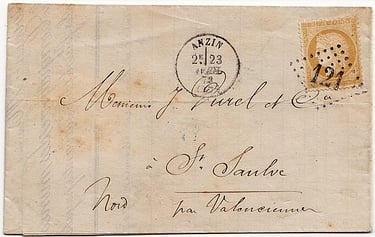 ANZIN
2E 23
73
121
Monsieur J Purel et Cie
à
St Saulve
Nord
par Valenciennes